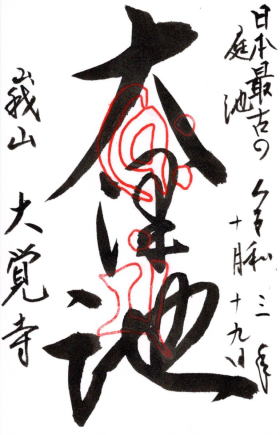 日本最古の
庭池
令和三年
十月十九日
大沢池
峨山 大覚寺